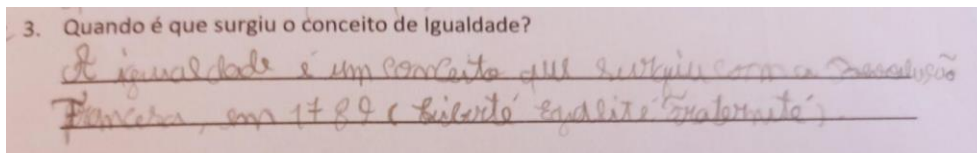 3. Quando é que surgiu o conceito de Igualdade?
A igualdade é um conceito que surgiu com a Revolução
Francesa, em 1789 (Liberté Egalité Fraternité).